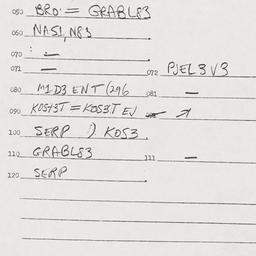 050 BRO = GRABL83
060 NASI, N83
070 : —
071 — 072 PJEL3V3
080 M1D3 ENT (296 081 —
090 KOSt3T = KOS3.T EJ
100 SERP ) KOS3
110 GRABL83 111 —
120 SERP